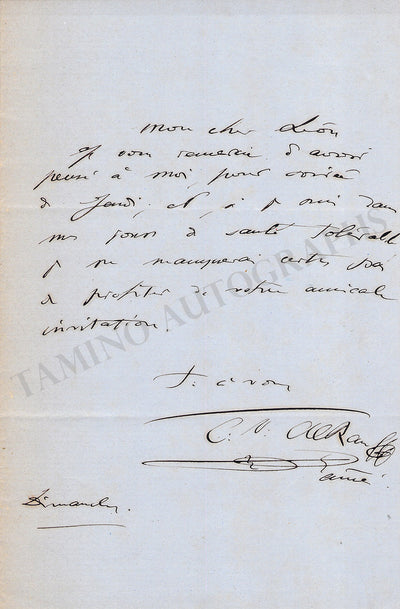 mon cher Léon
Je vous remercie d'avoir
pensé à moi, pour soirée
de Jeudi, et, si je suis dans
mes jours de santé tolérable
je ne manquerai certes pas
de profiter de votre amicale
invitation
T. à vous
C. V. Alkan
aîné
Dimanche.
TAMINO AUTOGRAPHS